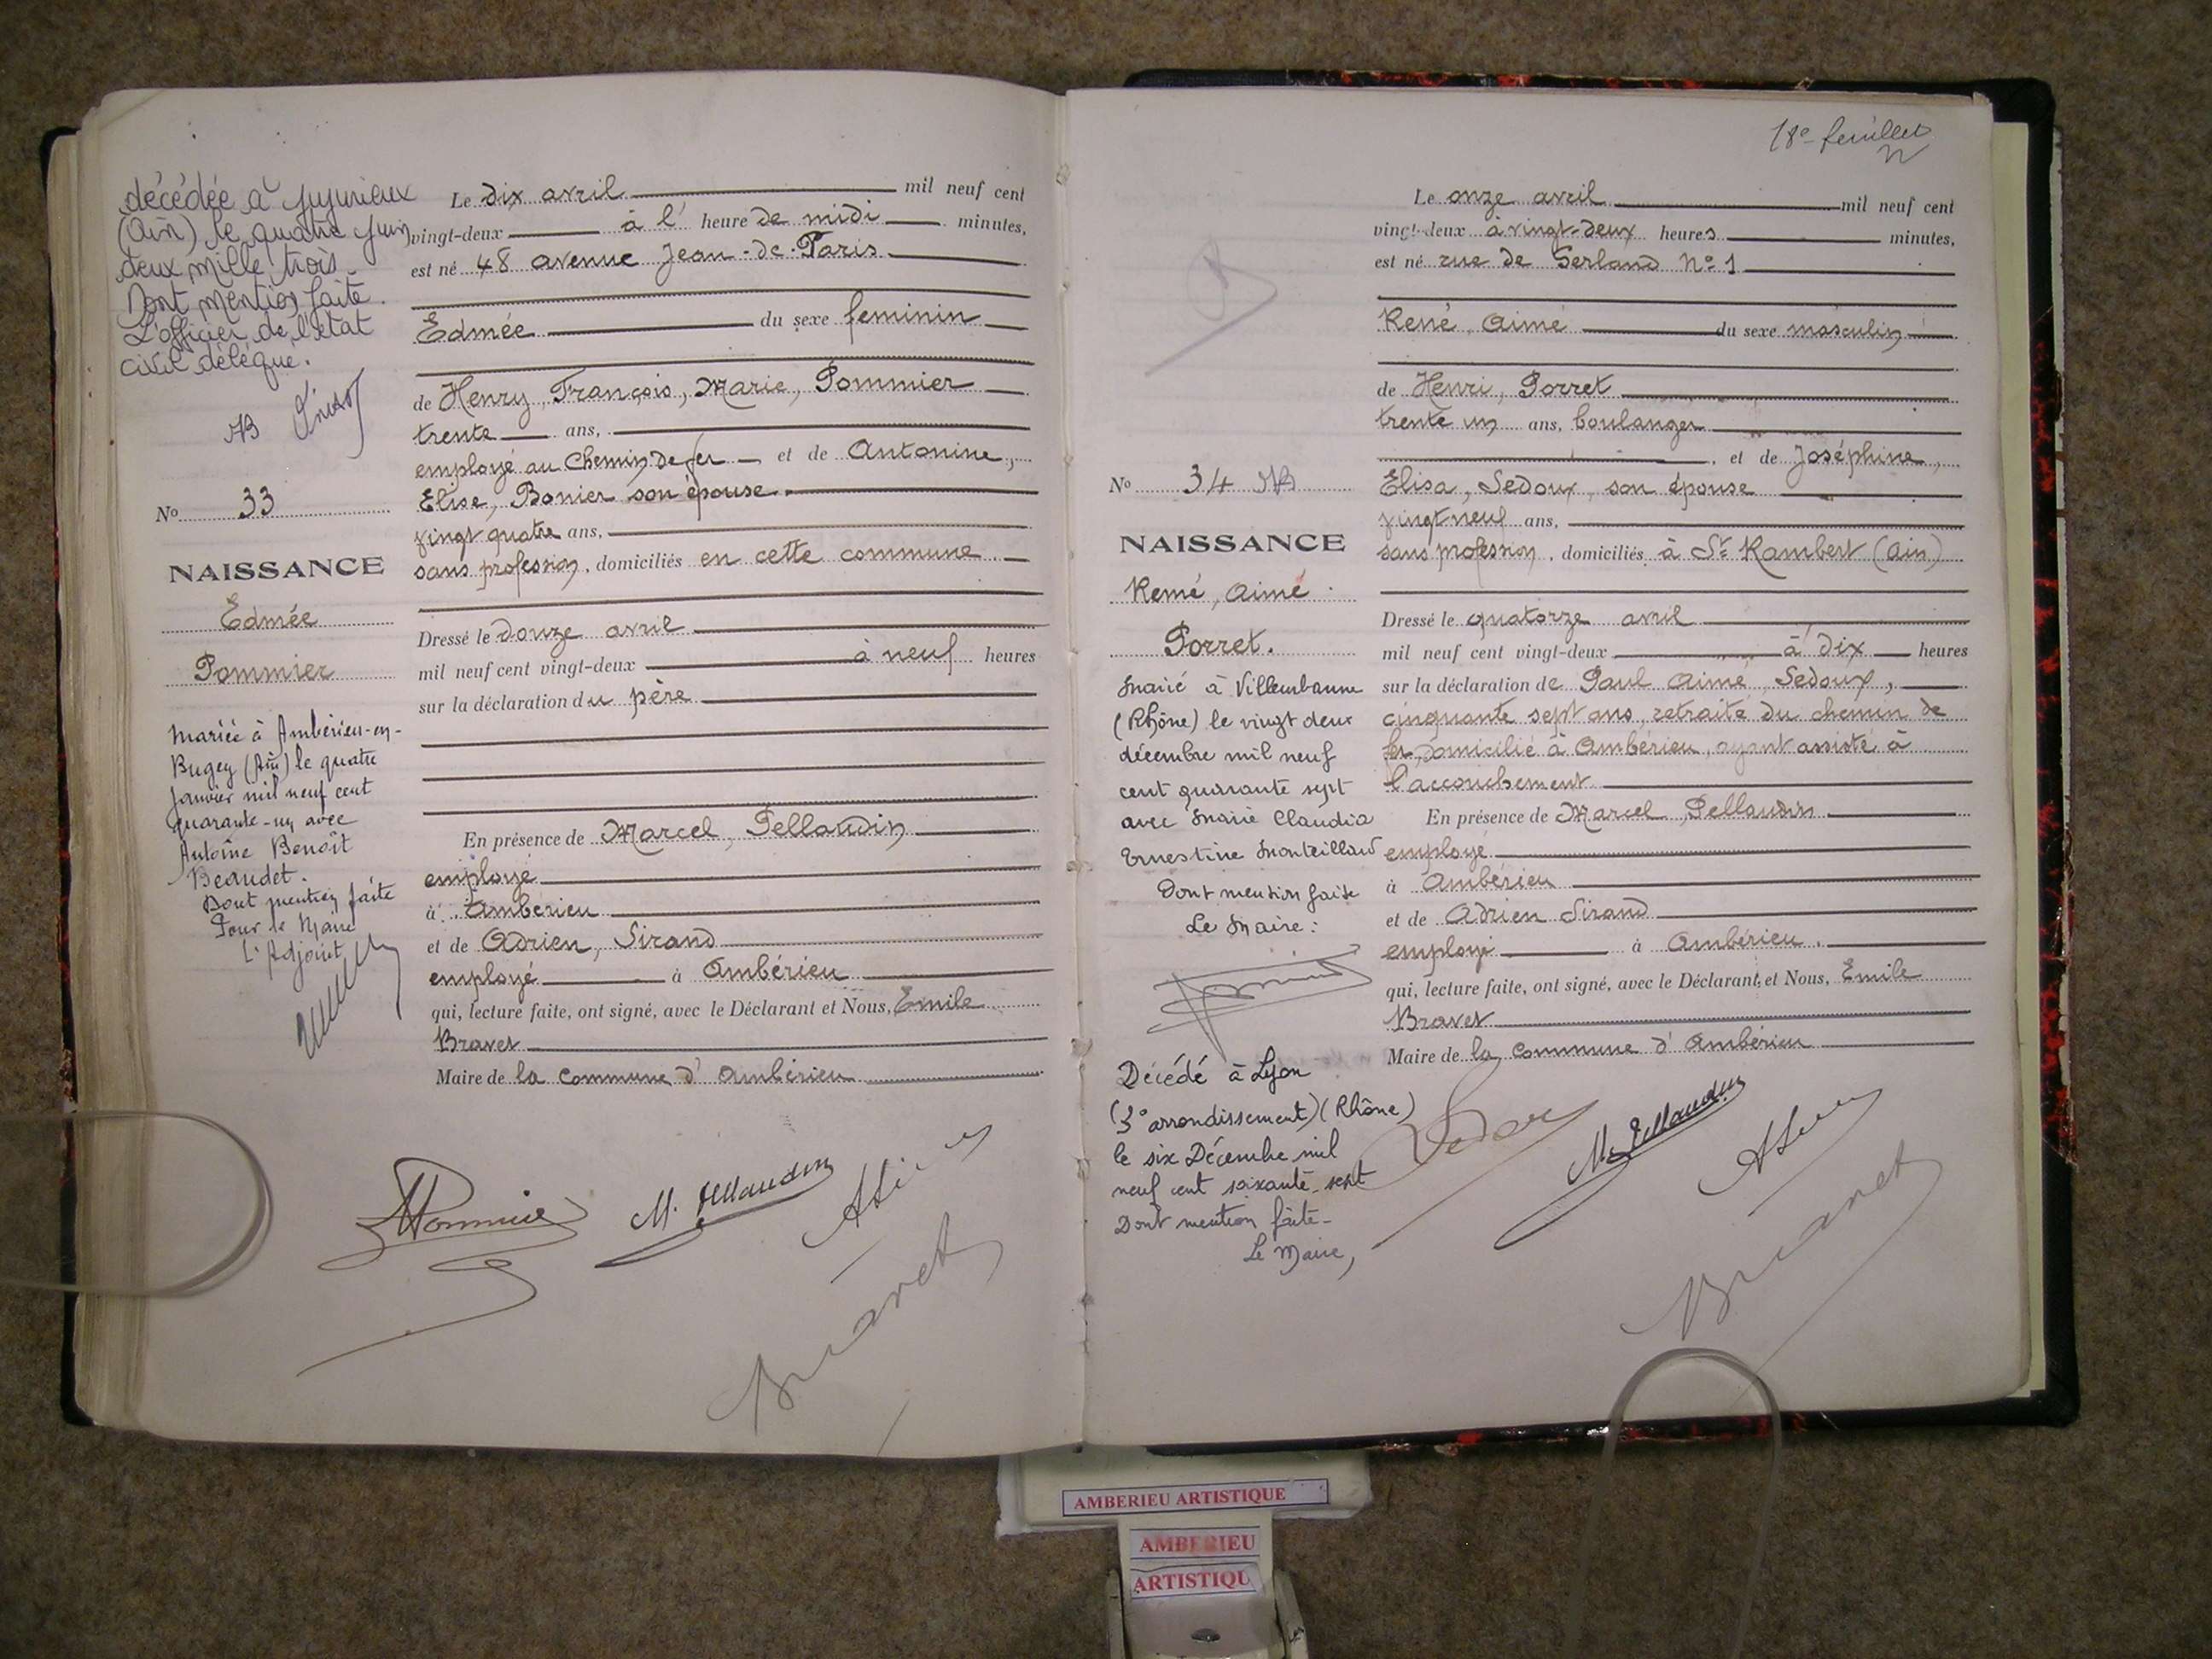 décédée à Jujurieux
(Ain) le quatre juin
deux mille trois.
Dont mention faite.
L'officier de l'état
civil délégué.
N° 33
NAISSANCE
Edmée
Pommier
Mariée à Ambérieu-en-
Bugey (Ain) le quatre
janvier mil neuf cent
quarante-un avec
Antoine Benoît
Beaudet.
Dont mention faite
Pour le Maire
L'Adjoint
Le dix avril mil neuf cent
vingt-deux à l' heure de midi minutes,
est né 48 avenue Jean-de-Paris
Edmée du sexe feminin
de Henry, François, Marie, Pommier
trente ans,
employé au Chemin de fer et de Antonine,
Elise, Bonier son épouse.
vingt quatre ans,
sans profession, domiciliés en cette commune
Dressé le douze avril
mil neuf cent vingt-deux à neuf heures
sur la déclaration du père
En présence de Marcel, Pellaudin
employé
à Ambérieu
et de Adrien, Sirand
employé à Ambérieu
qui, lecture faite, ont signé, avec le Déclarant et Nous, Emile
Bravet
Maire de la commune d'Ambérieu
HPommier
M. Pellaudin
Bravet
18e feuillet
N° 34
NAISSANCE
René, Aimé
Porret.
Marié à Villeurbanne
(Rhône) le vingt deux
décembre mil neuf
cent quarante sept
avec Marie Claudia
Ernestine Monteilland
Dont mention faite
Le Maire :
Décédé à Lyon
(3e arrondissement) (Rhône)
le six Décembre mil
neuf cent soixante-sept
Dont mention faite-
Le Maire,
Le onze avril mil neuf cent
vingt-deux à vingt-deux heures minutes,
est né rue de Gerland N° 1
René, Aimé du sexe masculin
de Henri, Porret
trente un ans, boulanger
, et de Joséphine,
Elisa, Sedoux, son épouse
vingt neuf ans,
sans profession, domiciliés à St Rambert (Ain)
Dressé le quatorze avril
mil neuf cent vingt-deux à dix heures
sur la déclaration de Paul Aimé, Sedoux,
cinquante sept ans, retraité du chemin de
fer, domicilié à Ambérieu, ayant assisté à
l'accouchement
En présence de Marcel, Pellaudin
employé
à Ambérieu
et de Adrien Sirand
employé à Ambérieu.
qui, lecture faite, ont signé, avec le Déclarant, et Nous, Emile
Bravet
Maire de la commune d'Ambérieu
M. Pellaudin
Bravet
AMBERIEU ARTISTIQUE
AMBERIEU
ARTISTIQU